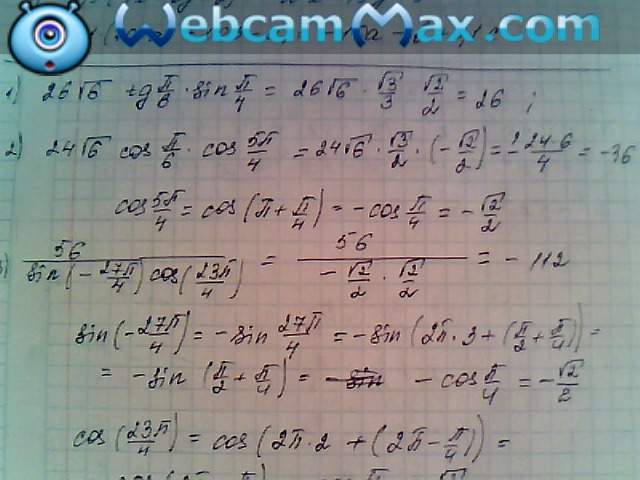 WebcamMax.com
1) 26√6 tg π/6 · sin π/4 = 26√6 · √3/3 · √2/2 = 26 ;
2) 24√6 cos π/6 · cos 5π/4 = 24√6 · √3/2 · (-√2/2) = - 24·6/4 = -36
cos 5π/4 = cos (π + π/4) = -cos π/4 = -√2/2
56 / sin(-27π/4) cos(23π/4) = 56 / -√2/2 · √2/2 = -112
sin(-27π/4) = -sin 27π/4 = -sin (2π·3 + (π/2 + π/4)) =
= -sin (π/2 + π/4) = -sin -cos π/4 = -√2/2
cos (23π/4) = cos (2π·2 + (2π - π/4)) =